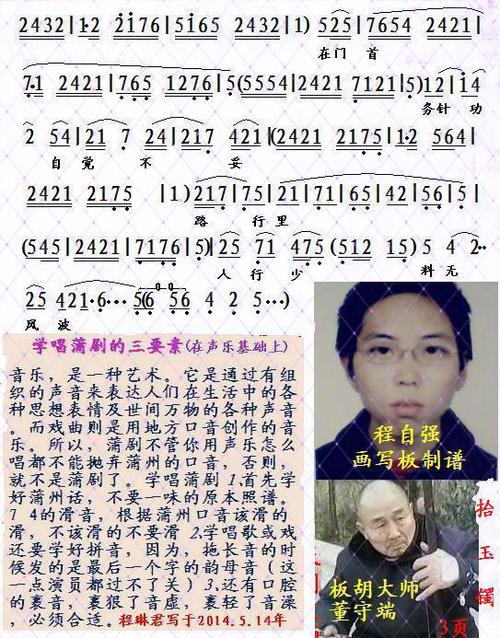 2432|1·2 2176 5165 2432|1) 525|7654 2421|
在门 首
7·1 2421|765 1276|5(5554|2421 7121|5)12|14
务针 功
2 54|21 7 24|217 421|(2421 2175|1·2 564|
自觉 不 妥
2421 2175 (1)217|75|21 71|65 42|56 5|
路 行里
(545|2421|7176|5)25 71 475(512 15)5 4 2··
人行 少 料无
25 421·6··· 56 56 4 2 5··/
风 波
学唱蒲剧的三要素(在声乐基础上)
音乐，是一种艺术。它是通过有组
织的声音来表达人们在生活中的各
种思想表情及世间万物的各种声音
而戏曲则是用地方口音创作的音
乐。所以，蒲剧不管你用声乐怎么
唱都不能抛弃蒲州的口音，否则，
就不是蒲剧了。学唱蒲剧1.首先学
好蒲州话，不要一味的原本照谱。
7 4的滑音，根据蒲州口音该滑的
滑，不该滑的不要滑2.学唱歌或戏
还要学好拼音，因为，拖长音的时
候发的是最后一个字的韵母音（这
一点演员都过不了关）3.还有口腔
的裹音，裹狠了音虚，裹轻了音澡
，必须合适。程琳君写于2014.5.14年
程自强
画写板制谱
板胡大师
董守瑞
拾
玉
镯
3页